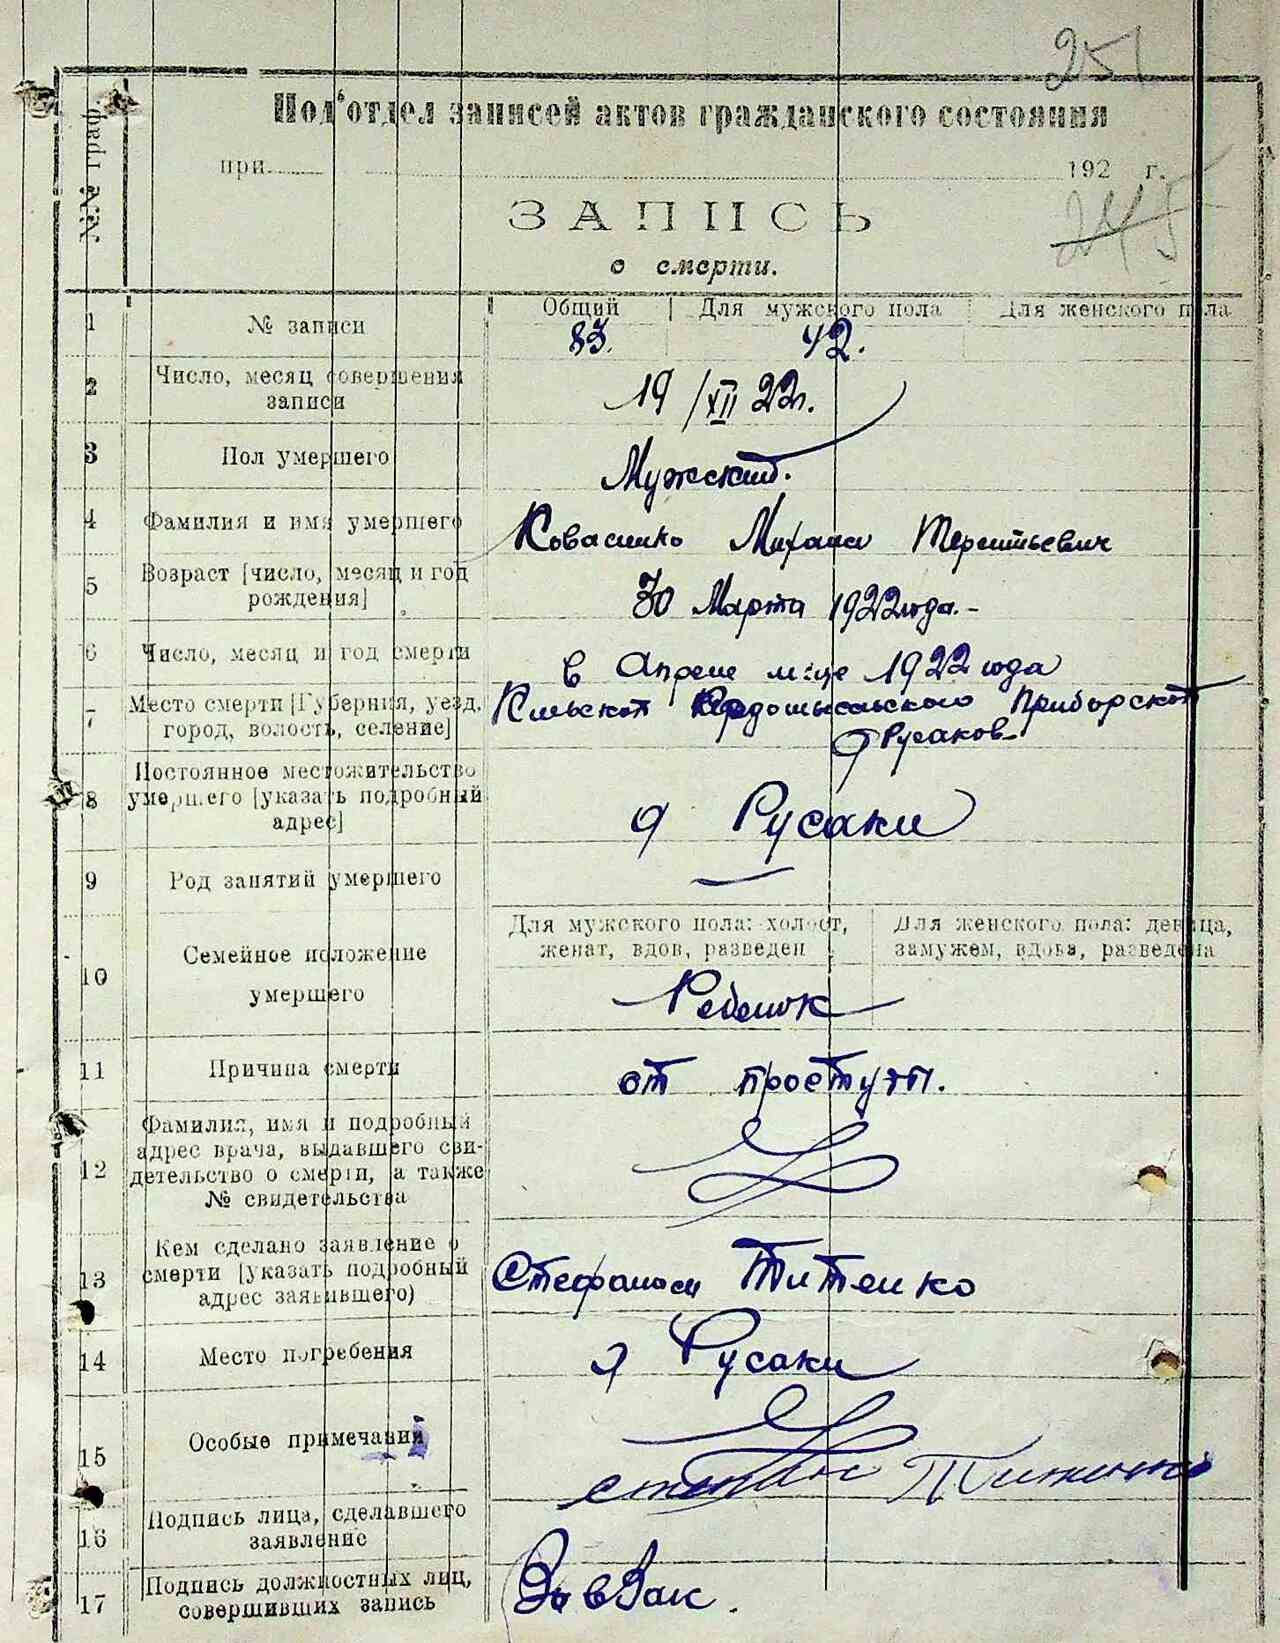 251
Под'отдел записей актов гражданского состояния
№№ граф.
при 192 г.
245
ЗАПИСЬ
о смерти.
1 № записи Общий Для мужского пола Для женского пола
83. 42.
2 Число, месяц совершения записи
19/XII 22г.
3 Пол умершего
Мужский.
4 Фамилия и имя умершего
Михаил Терентьевич
5 Возраст [число, месяц и год рождения]
30 Марта 1922 года.-
6 Число, месяц и год смерти
в Апреле м-це 1922 года
7 Место смерти [Губерния, уезд, город, волость, селение]
Приборской
Русаков
8 Постоянное местожительство умершего [указать подробный адрес]
д Русаки
9 Род занятий умершего
—
10 Семейное положение умершего
Для мужского пола: холост, женат, вдов, разведен
Для женского пола: девица, замужем, вдова, разведена
Ребенок
11 Причина смерти
от простуды.
12 Фамилия, имя и подробный адрес врача, выдавшего свидетельство о смерти, а также № свидетельства
13 Кем сделано заявление о смерти [указать подробный адрес заявившего)
Титенко
14 Место погребения
д Русаки
15 Особые примечания
16 Подпись лица, сделавшего заявление
17 Подпись должностных лиц, совершивших запись